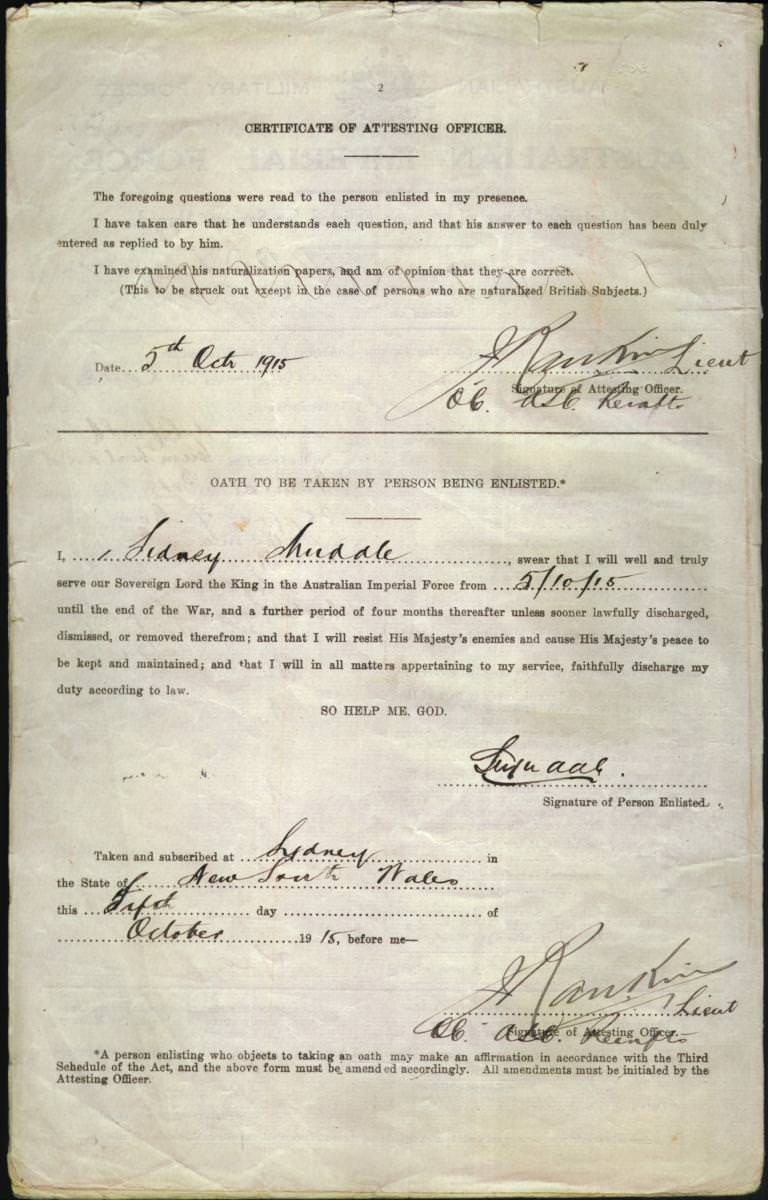 2
CERTIFICATE OF ATTESTING OFFICER.
The foregoing questions were read to the person enlisted in my presence.
I have taken care that he understands each question, and that his answer to each question has been duly
entered as replied to by him.
I have examined his naturalization papers, and am of opinion that they are correct.
(This to be struck out except in the case of persons who are naturalized British Subjects.)
Date 5th Octr 1915
Rankin Lieut
Signature of Attesting Officer.
OC. ASC. Reinfts
OATH TO BE TAKEN BY PERSON BEING ENLISTED.*
I, Sidney Muddle, swear that I will well and truly
serve our Sovereign Lord the King in the Australian Imperial Force from 5/10/15
until the end of the War, and a further period of four months thereafter unless sooner lawfully discharged,
dismissed, or removed therefrom; and that I will resist His Majesty's enemies and cause His Majesty's peace to
be kept and maintained; and that I will in all matters appertaining to my service, faithfully discharge my
duty according to law.
SO HELP ME, GOD.
Signature of Person Enlisted.
Taken and subscribed at Sydney in
the State of New South Wales
this Fifth day of
October 1915, before me—
Rankin Lieut
Signature of Attesting Officer.
OC. ASC. Reinfts
*A person enlisting who objects to taking an oath may make an affirmation in accordance with the Third
Schedule of the Act, and the above form must be amended accordingly. All amendments must be initialed by the
Attesting Officer.